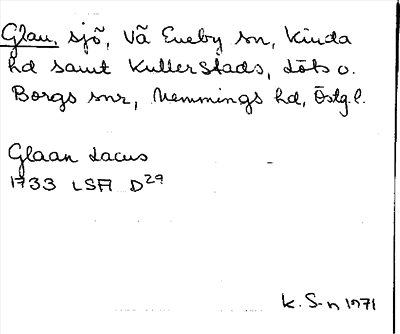 Glan, sjö, Vå Eneby sn, Kinda
hd samt Kullerstads, Löts o.
Borgs snr, Memmings hd, Östg. l.
Glaan Lacus
1733 LSA D29
K. S-n 1971